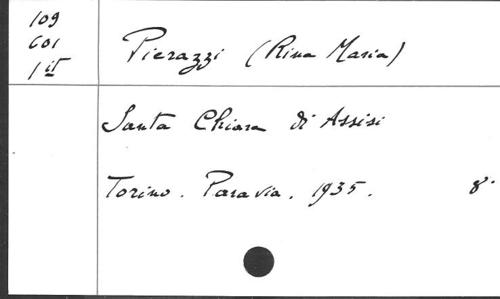 109
601
1 it
Pierazzi (Rina Maria)
Santa Chiara di Assisi
Torino. Paravia. 1935. 8°